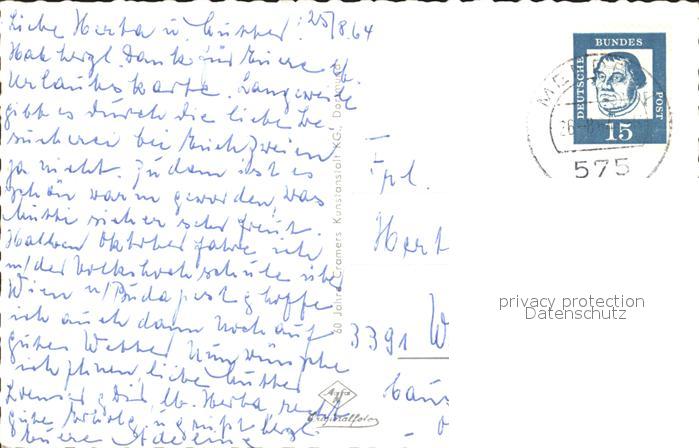 25/8.64
Liebe Herta u. Mutter!
Hab herzl. Dank für Eure lb.
Urlaubskarte. Langeweile
gibt es durch die liebe Be-
sucherei bei Euch Zweien
ja nicht. Zudem ist es
schön warm geworden, was
Mutti sicher sehr freut.
Halben Oktober fahre ich
m/der Volkshochschule über
Wien n/Budapest u. hoffe
ich auch dann noch auf
gutes Wetter. Nun wünsche
ich Ihnen liebe Mutter
u. Dir, lb. Herta, recht
gute u. grüßt herzl.
Eure
60 Jahre Cramers Kunstanstalt KG, Dortmund
Agfa
DEUTSCHE
BUNDES
POST
15
575
Frl.
Hert
3391 W
privacy protection
Datenschutz